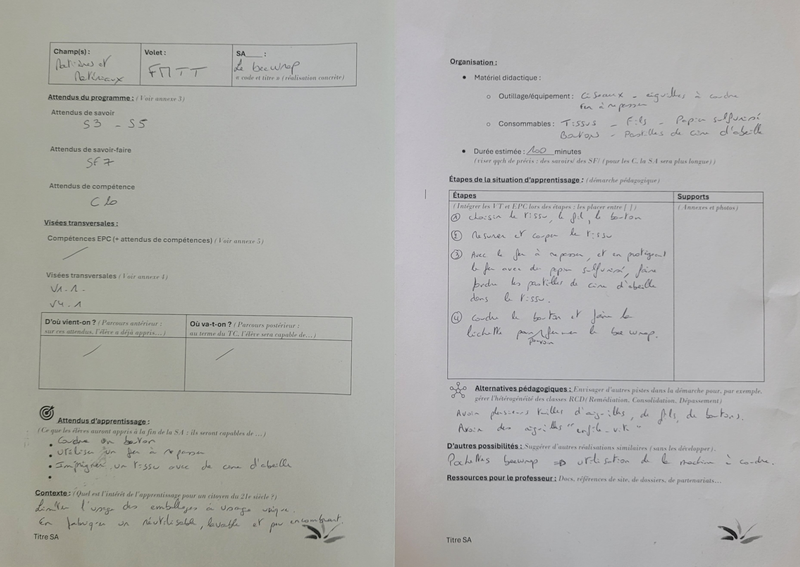 Champ(s) :
Matières et
Matériaux
Volet :
FMTT
SA___ :
Le bee wrap
« code et titre » (réalisation concrète)
Attendus du programme : (Voir annexe 3)
Attendus de savoir
S3 - S5
Attendus de savoir-faire
SF7
Attendus de compétence
C10
Visées transversales :
Compétences EPC (+ attendus de compétences) (Voir annexe 5)
Visées transversales (Voir annexe 4)
V1.1 -
V4.1
D'où vient-on ? (Parcours antérieur :
sur ces attendus, l'élève a déjà appris…)
Où va-t-on ? (Parcours postérieur :
au terme du TC, l'élève sera capable de…)
Attendus d'apprentissage :
(Ce que les élèves auront appris à la fin de la SA : ils seront capables de …)
• Coudre un bouton
• Utiliser un fer à repasser
• Imprégner un tissu avec de cire d'abeille
•
Contexte : (Quel est l'intérêt de l'apprentissage pour un citoyen du 21e siècle ?)
Limiter l'usage des emballages à usage unique.
En fabriquer un réutilisable, lavable et peu encombrant.
Titre SA
Organisation :
• Matériel didactique :
o Outillage/équipement : Ciseaux - aiguilles à coudre
fer à repasser
o Consommables : Tissus - Fils - Papier sulfurisé
Boutons - Pastilles de cire d'abeille
• Durée estimée : 100 minutes
(viser qqch de précis : des savoirs/ des SF/ (pour les C, la SA sera plus longue))
Étapes de la situation d'apprentissage : (démarche pédagogique)
Étapes
(Intégrer les VT et EPC lors des étapes : les placer entre [ ])
Supports
(Annexes et photos)
① choisir le tissu, le fil, le bouton
② Mesurer et couper le tissu
③ Avec le fer à repasser, et en protégeant
le fer avec du papier sulfurisé, faire
fondre les pastilles de cire d'abeille
dans le tissu.
④ Coudre le bouton et faire la
lichette pour fermer le bee wrap.
pouvoir
Alternatives pédagogiques : Envisager d'autres pistes dans la démarche pour, par exemple,
gérer l'hétérogénéité des classes RCD( Remédiation, Consolidation, Dépassement)
Avoir plusieurs tailles d'aiguilles, de fils, de boutons.
Avoir des aiguilles "enfile-vite"
D'autres possibilités : Suggérer d'autres réalisations similaires (sans les développer).
Pochettes beewrap => utilisation de la machine à coudre.
Ressources pour le professeur : Docs, références de site, de dossiers, de partenariats…
Titre SA